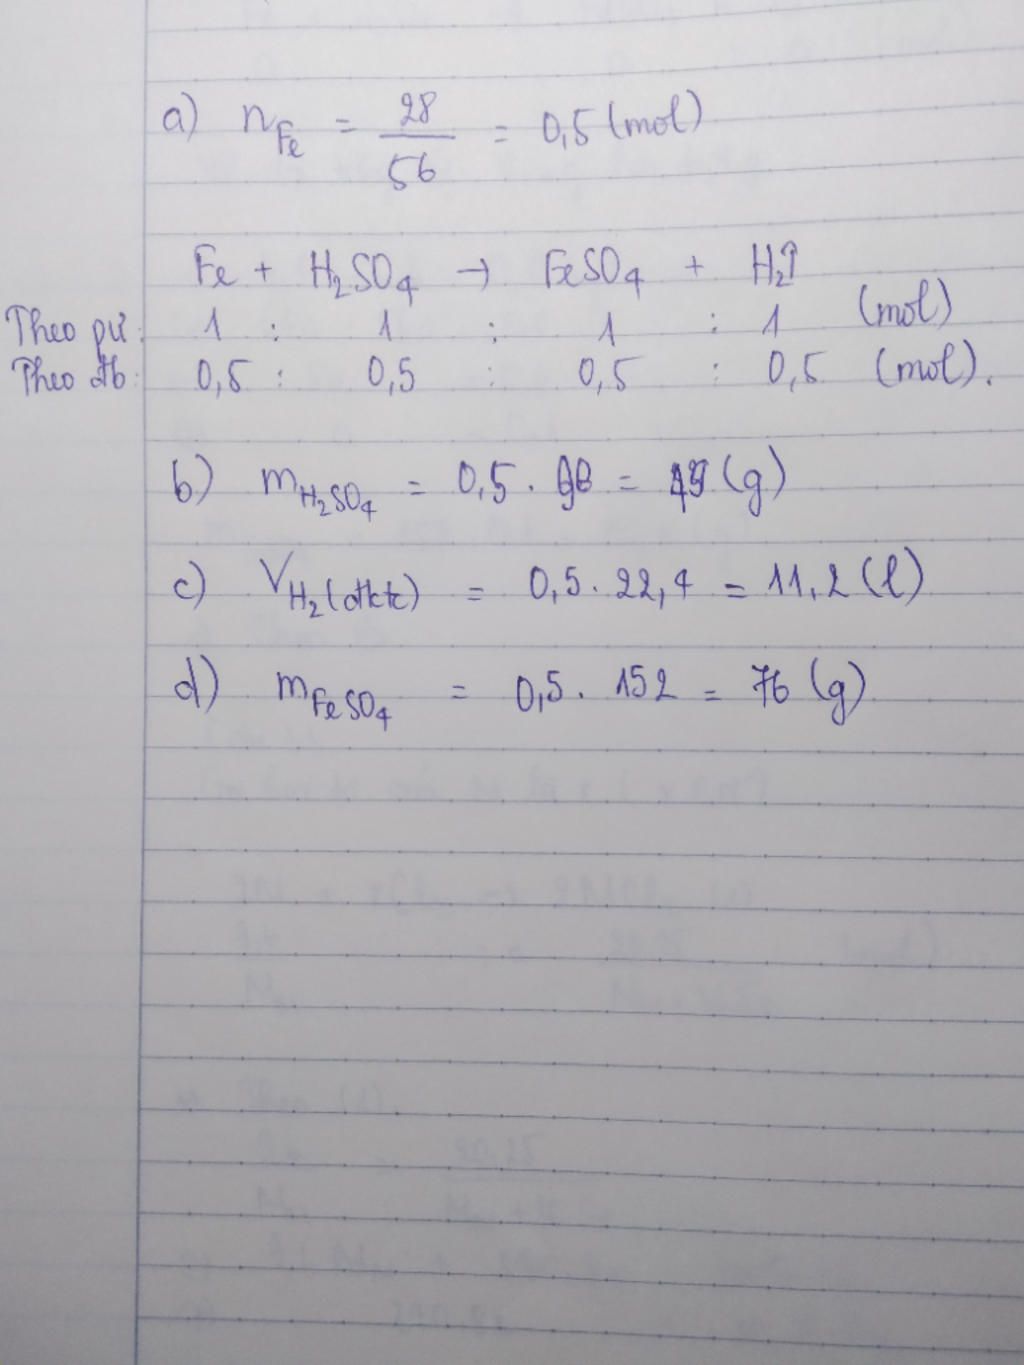 a) nFe = 28/56 = 0,5 (mol)
Fe + H2SO4 → FeSO4 + H2↑
Theo pư: 1 : 1 : 1 : 1 (mol)
Theo đb: 0,5 : 0,5 : 0,5 : 0,5 (mol).
b) mH2SO4 = 0,5 . 98 = 49 (g)
c) VH2(đktc) = 0,5 . 22,4 = 11,2 (l)
d) mFeSO4 = 0,5 . 152 = 76 (g)